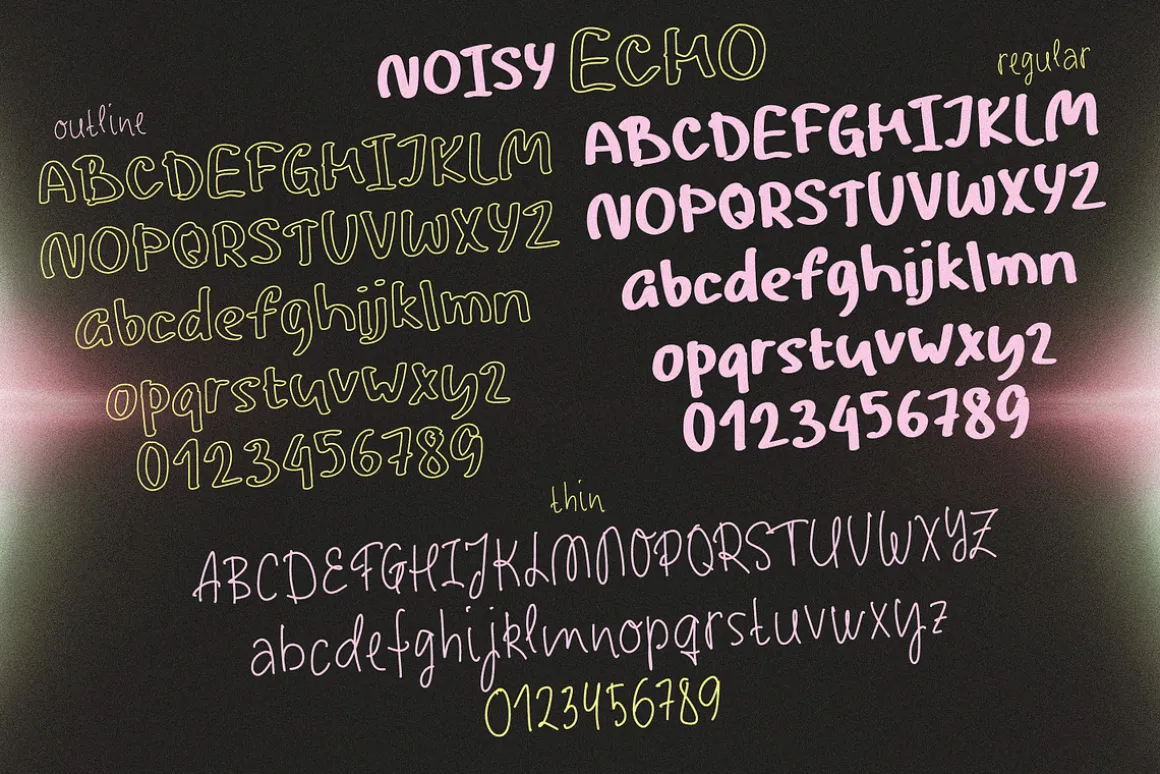 NOISY ECHO
outline
ABCDEFGHIJKLM
NOPQRSTUVWXYZ
abcdefghijklmn
opqrstuvwxyz
0123456789
regular
ABCDEFGHIJKLM
NOPQRSTUVWXYZ
abcdefghijklmn
opqrstuvwxyz
0123456789
thin
ABCDEFGHIJKLMNOPQRSTUVWXYZ
abcdefghijklmnopqrstuvwxyz
0123456789